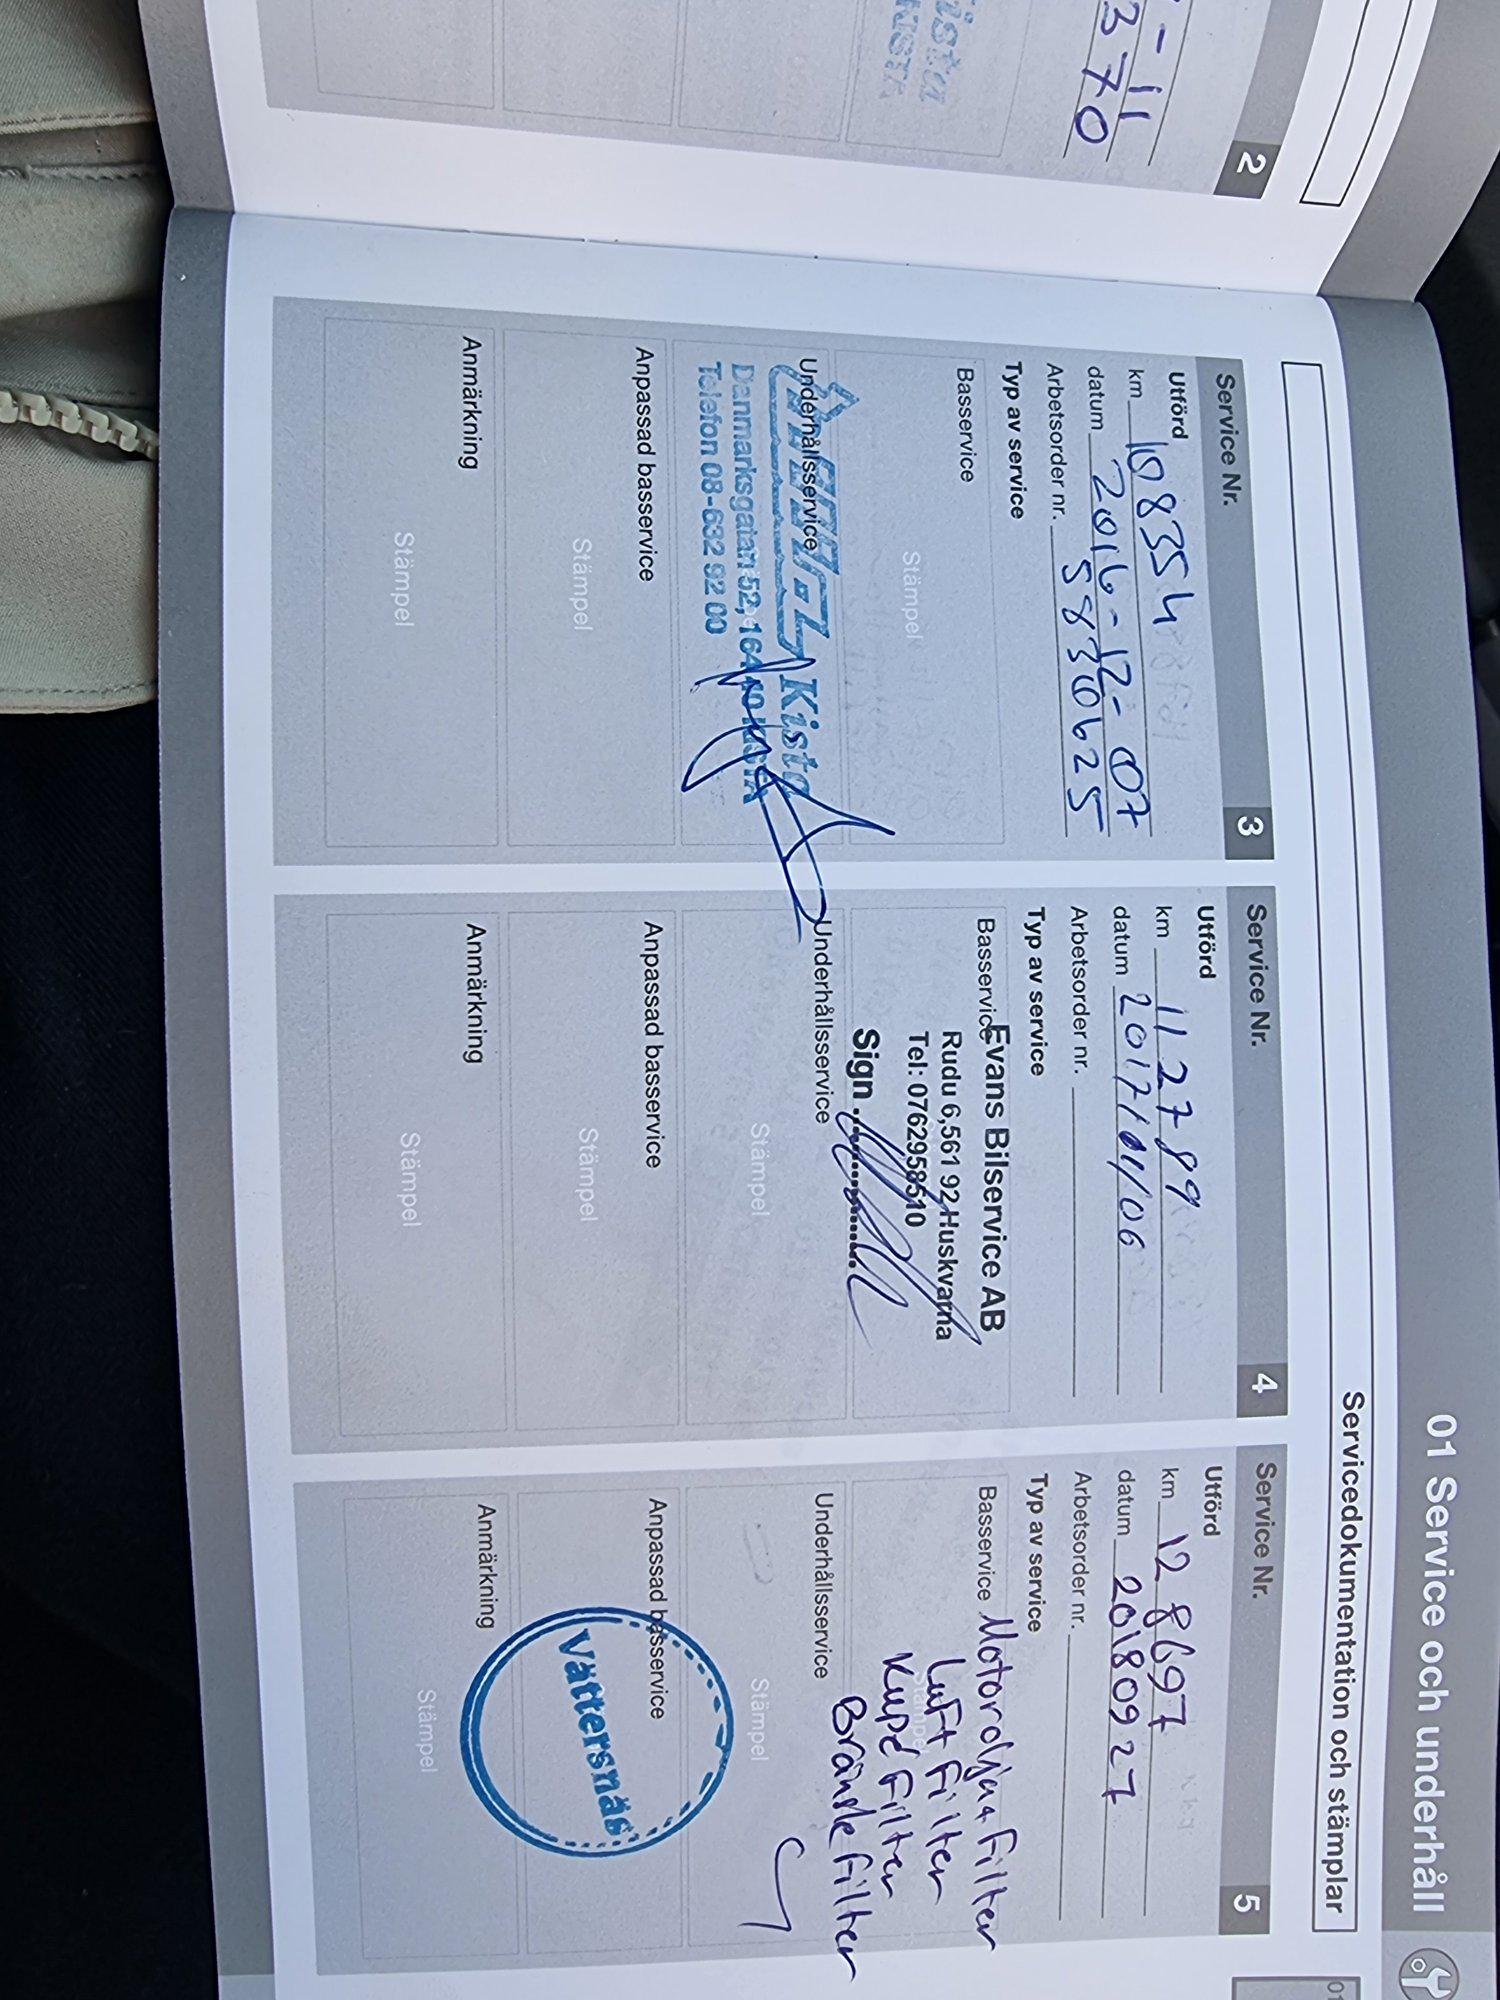 - 11
370
2
ista
KISTA
01 Service och underhåll
Servicedokumentation och stämplar
01
Service Nr. 3
Utförd
km 108354
datum 2016-12-07
Arbetsorder nr. 5830625
Typ av service
Basservice
Stämpel
Underhållsservice
Kista
Danmarksgatan 52, 164 40 KISTA
Telefon 08-632 92 00
Anpassad basservice
Stämpel
Anmärkning
Stämpel
Service Nr. 4
Utförd
km 112789
datum
Arbetsorder nr.
Typ av service
Basservice
Evans Bilservice AB
Rudu 6,561 92 Huskvarna
Tel: 0762958510
Sign
Underhållsservice
Stämpel
Anpassad basservice
Stämpel
Anmärkning
Stämpel
Service Nr. 5
Utförd
km 128697
datum 20180927
Arbetsorder nr.
Typ av service
Basservice Motorolja + Filter
Luft Filter
Kupé Filter
Bränsle Filter
Stämpel
Underhållsservice
Stämpel
Anpassad basservice
Vättersnäs
Anmärkning
Stämpel